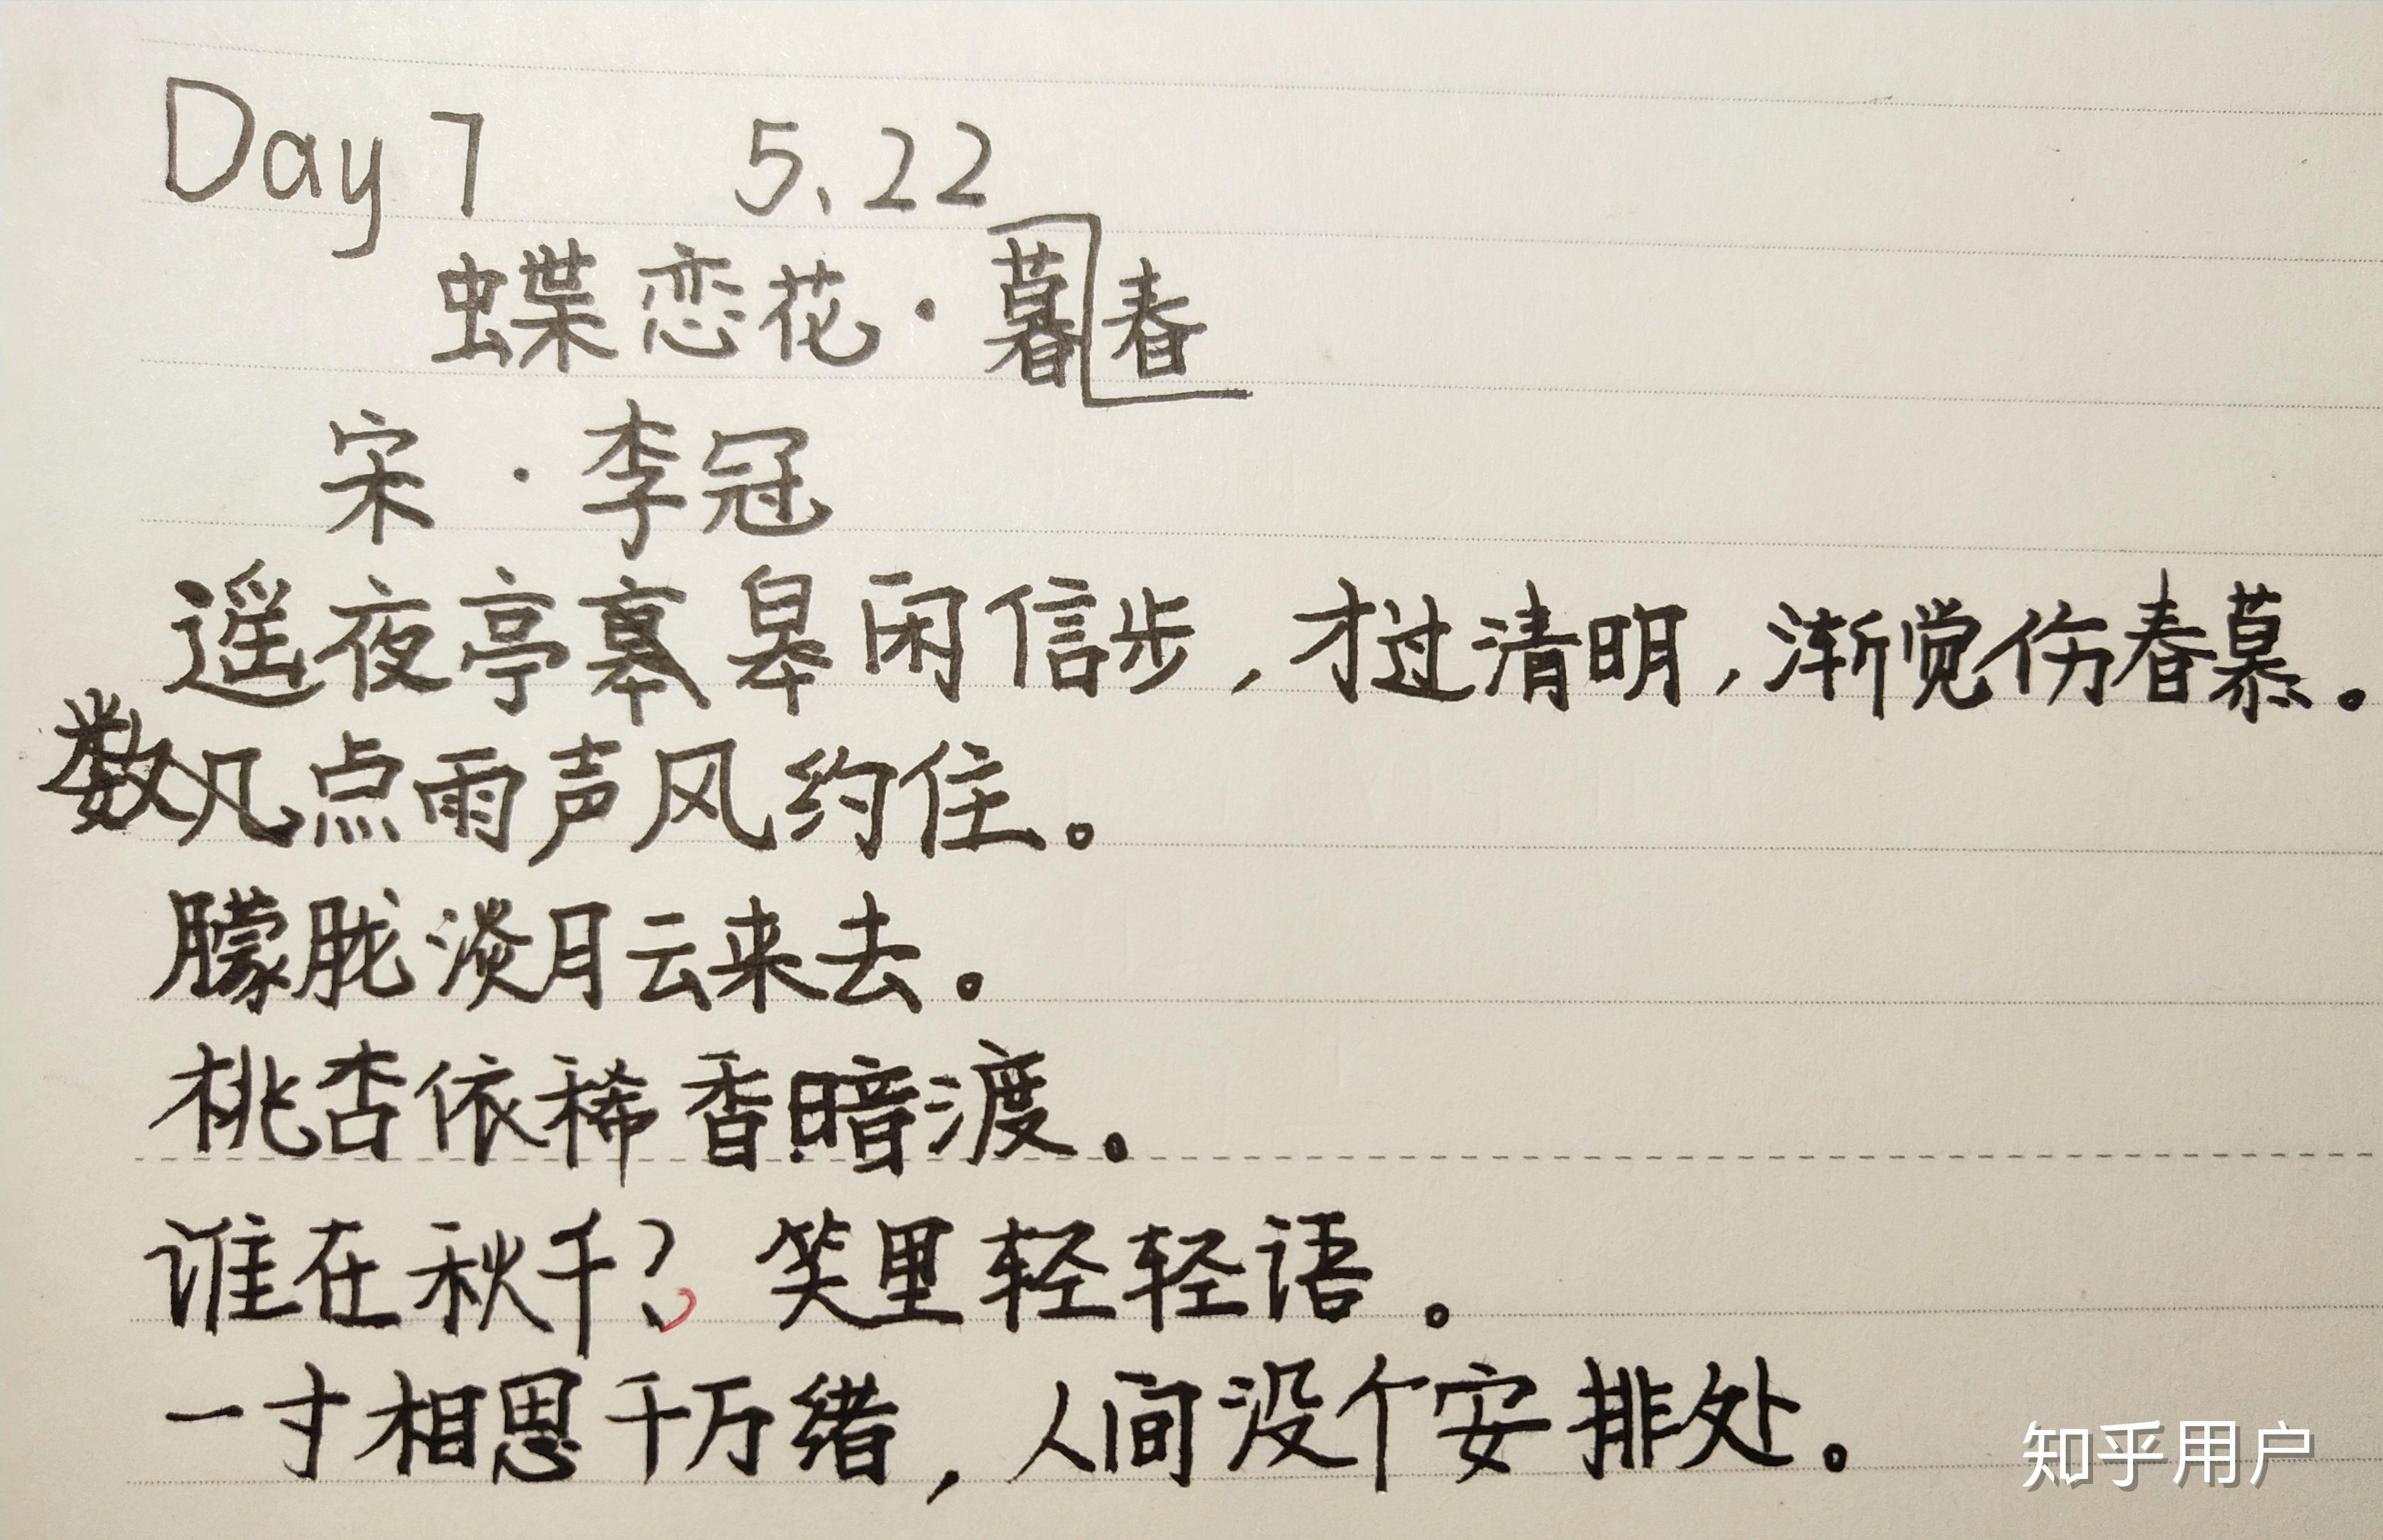 Day 7 5.22
蝶恋花·暮春
宋·李冠
遥夜亭皋闲信步,才过清明,渐觉伤春慕。
数几点雨声风约住。
朦胧淡月云来去。
桃杏依稀香暗渡。
谁在秋千?笑里轻轻语。
一寸相思千万绪,人间没个安排处。
知乎用户